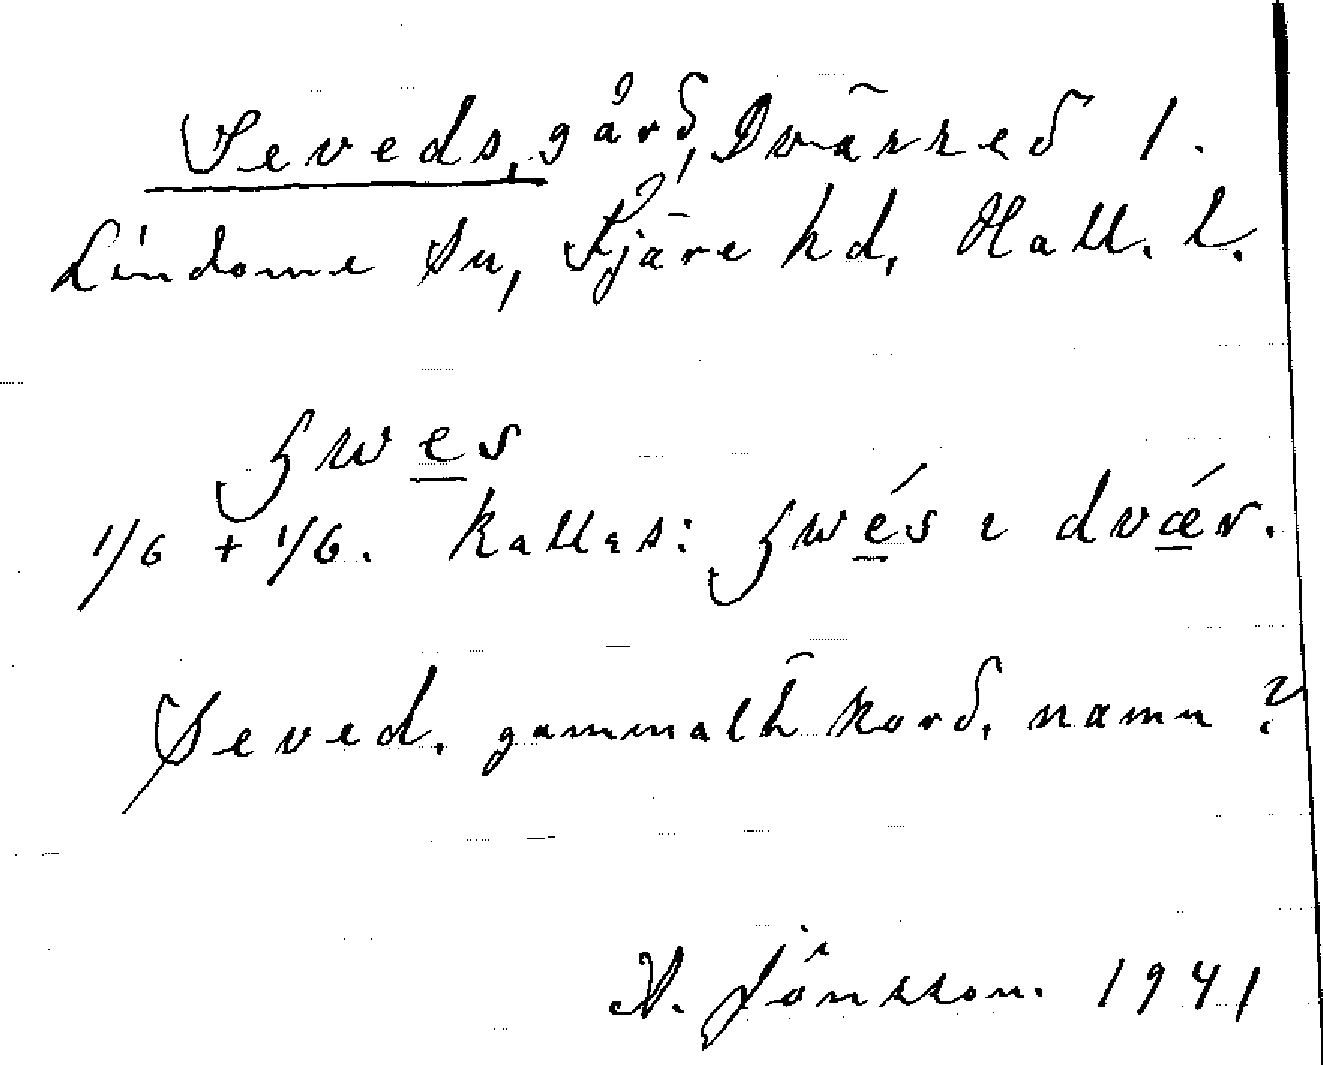 Seveds, gård, Dvärred 1.
Lindome Sn, Fjäre hd, Hall. l.
ʒwes
1/6 + 1/6. Kallas: ʒwés ı dvǽr.
Seved. gammalt kord. namn?
A. Jönsson. 1941